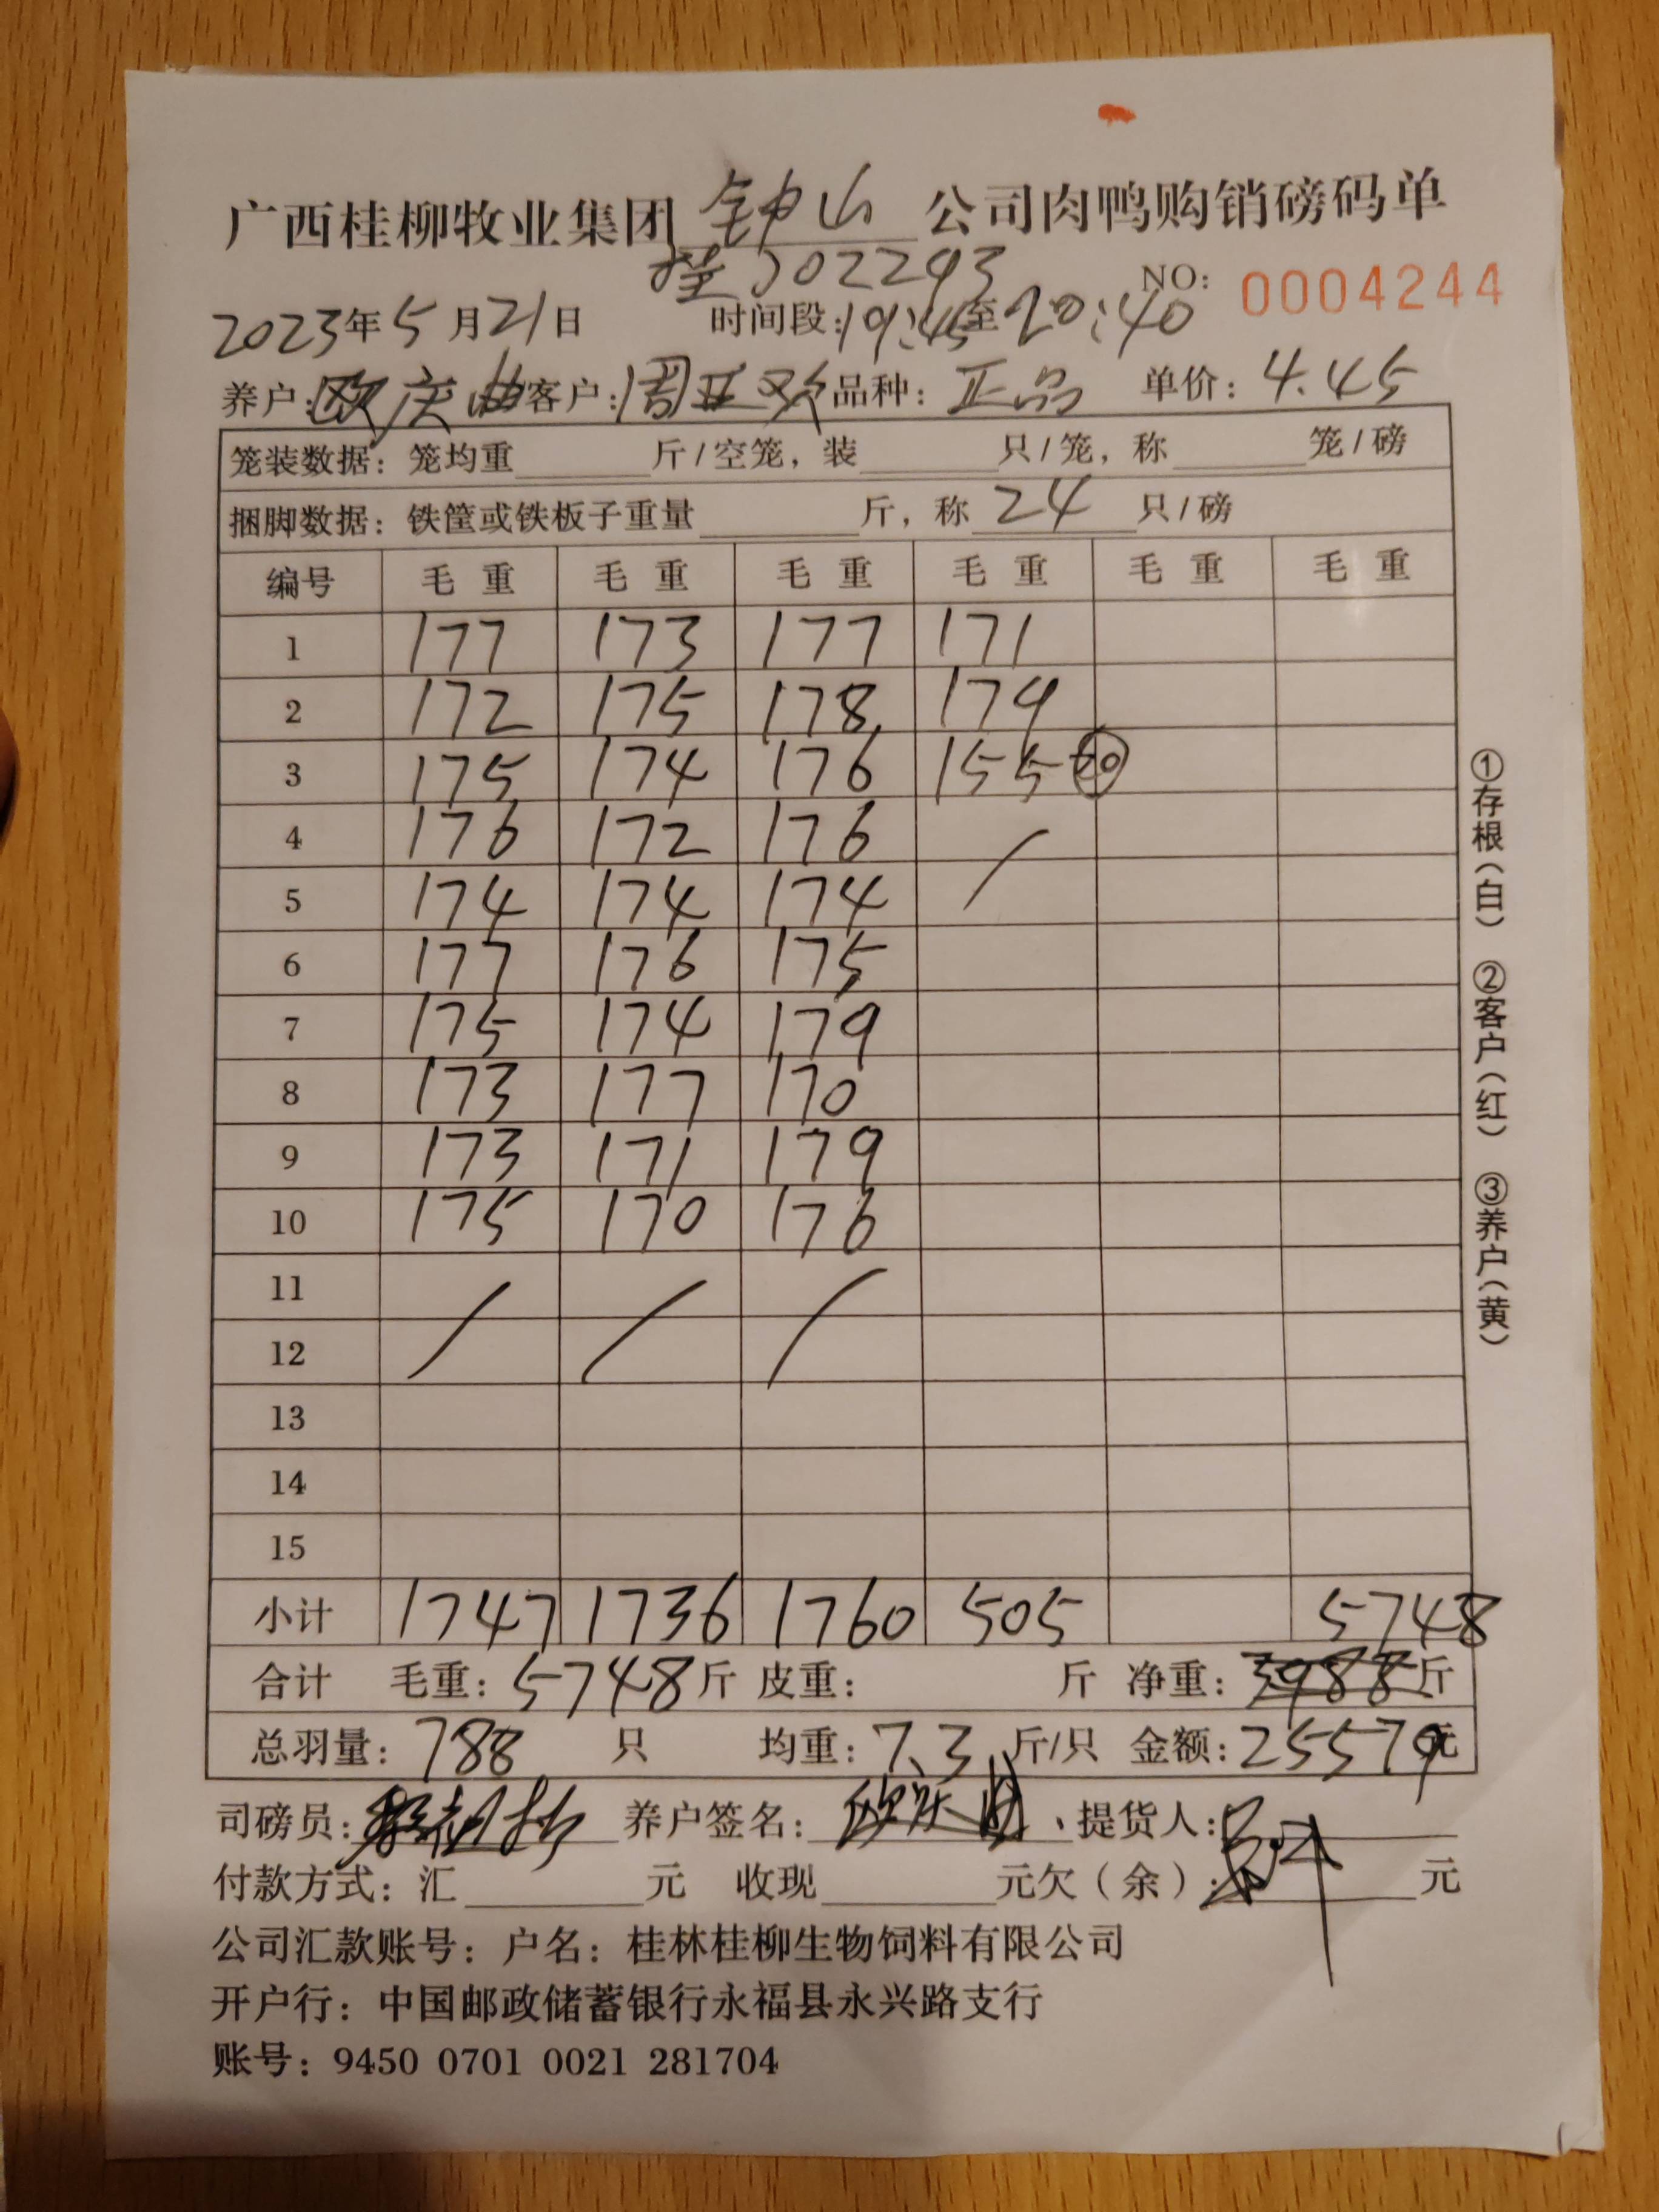 广西桂柳牧业集团 钟山 公司肉鸭购销磅码单
NO: 0004244
2023年5月21日 时间段:19:45至20:40
养户: 客户: 品种: 正品 单价: 4.45
笼装数据: 笼均重 斤/空笼, 装 只/笼, 称 笼/磅
捆脚数据: 铁筐或铁板子重量 斤, 称 24 只/磅
编号 毛重 毛重 毛重 毛重 毛重 毛重
1 177 173 177 171
2 172 175 178 179
3 175 174 176 155 20
4 176 172 176
5 174 174 174
6 177 176 175
7 175 174 179
8 173 177 170
9 173 171 179
10 175 170 176
11
12
13
14
15
小计 1747 1736 1760 505 5748
合计 毛重: 5748斤 皮重: 斤 净重: 3988斤
总羽量: 788 只 均重: 7.3 斤/只 金额: 25579元
司磅员: 养户签名: 提货人:
付款方式: 汇 元 收现 元欠(余): 元
公司汇款账号: 户名: 桂林桂柳生物饲料有限公司
开户行: 中国邮政储蓄银行永福县永兴路支行
账号: 9450 0701 0021 281704
①存根(白) ②客户(红) ③养户(黄)